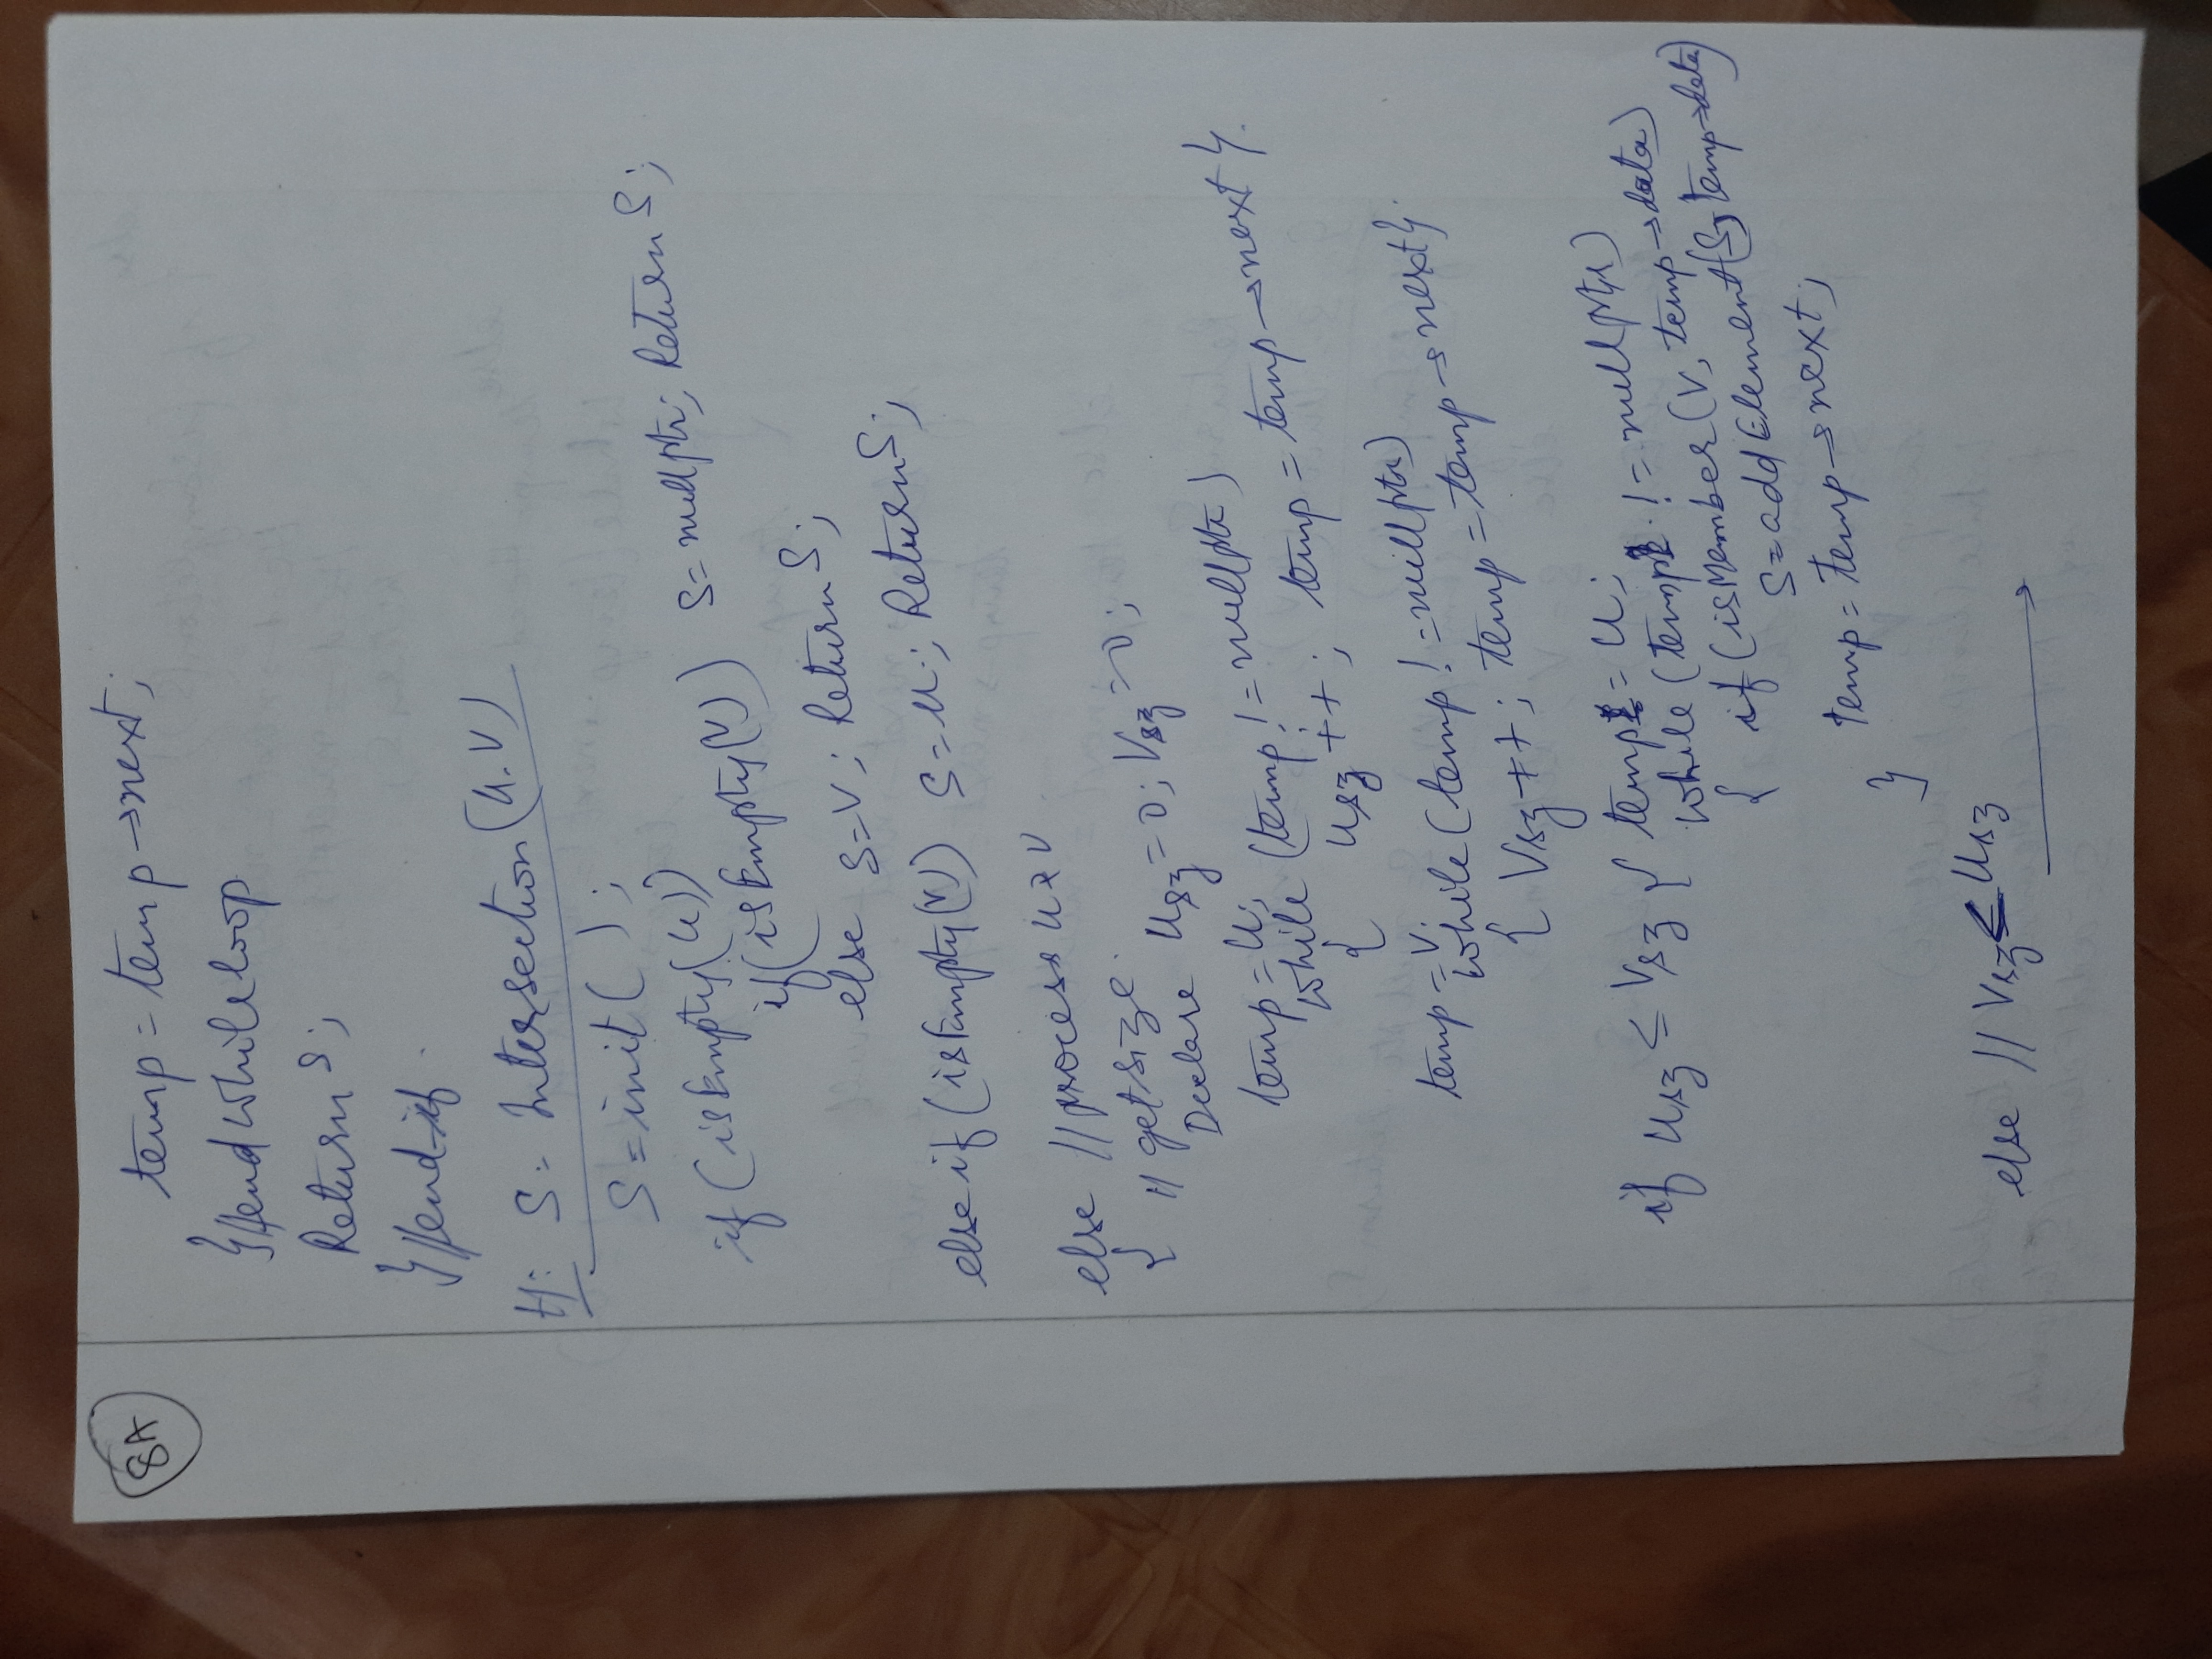 8A
temp = temp→next;
}//end while loop
Return S;
}//end-if
H: S = Intersection(U.V)
S = init( );
if (isEmpty(U))
if(isEmpty(V)) S = nullptr; Return S;
else S=V; Return S;
else if (isEmpty(V)) S = U; Return S;
else //process U & V
{ // get size.
Declare Usz = 0; Vsz = 0;
temp = U;
while (temp != nullptr)
{ Usz ++; temp = temp→next }.
temp = V;
while (temp != nullptr)
{ Vsz ++; temp = temp→next}.
if Usz ≤ Vsz { temp = U;
while (temp != nullptr)
{ if (isMember(V, temp→data)
S = addElement(S, temp→data)
temp = temp→next;
}
else // Vsz < Usz
→